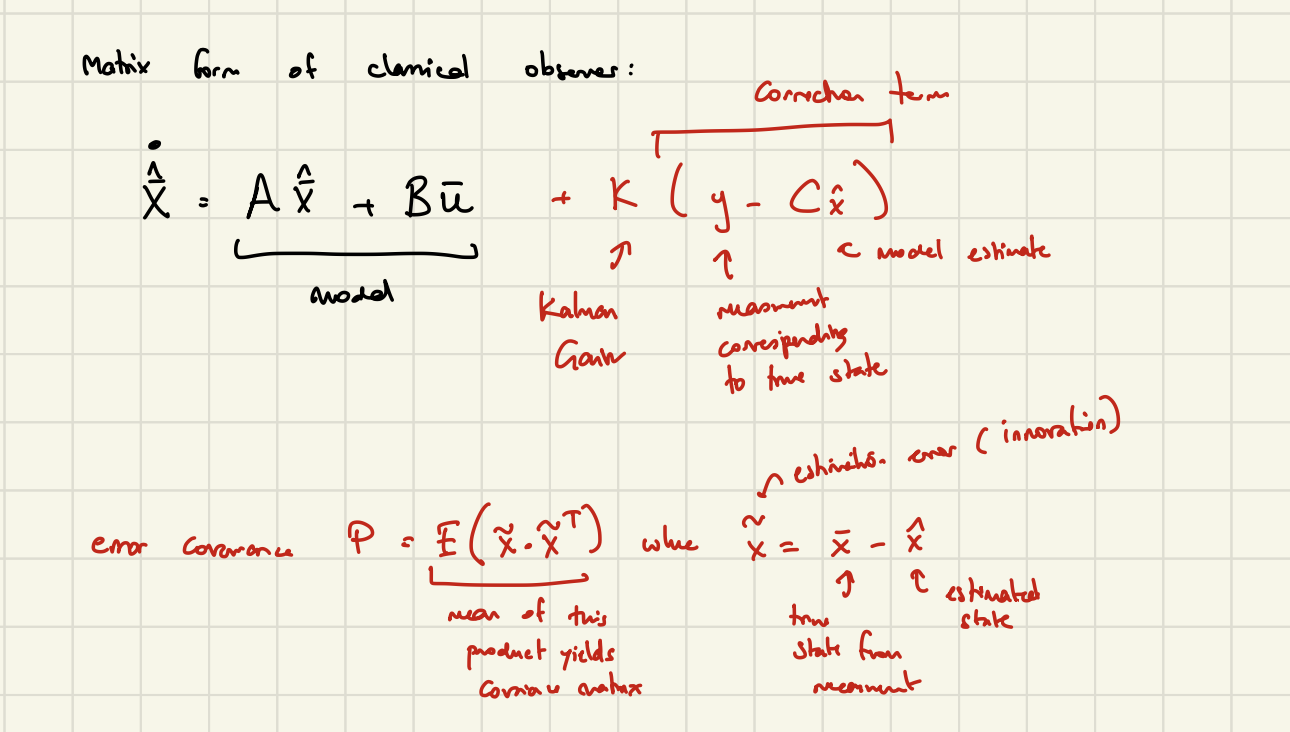 Matrix form of classical observer:
Correction term
$\dot{\hat{\bar{x}}} = A\hat{\bar{x}} + B\bar{u} + K(y - C\hat{x})$
model
model estimate
Kalman
Gain
measurment
correspending
to true state
estimation error (innovation)
error covariance $P = E(\tilde{x} \cdot \tilde{x}^T)$ where $\tilde{x} = \bar{x} - \hat{x}$
mean of this
product yields
covariance matrix
true
state from
measurment
estimated
state